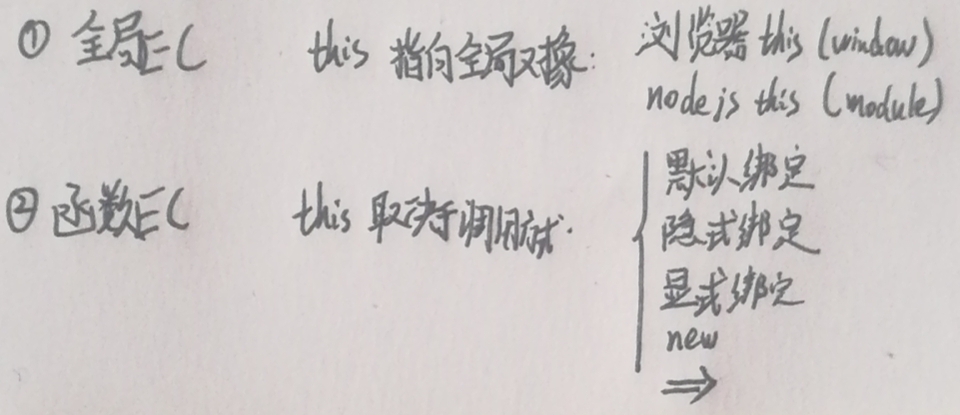 ① 全局EC this 指向全局对象: 浏览器 this (window)
node js this (module)
② 函数EC this 取决于调用方式. 默认绑定
隐式绑定
显式绑定
new
⇒